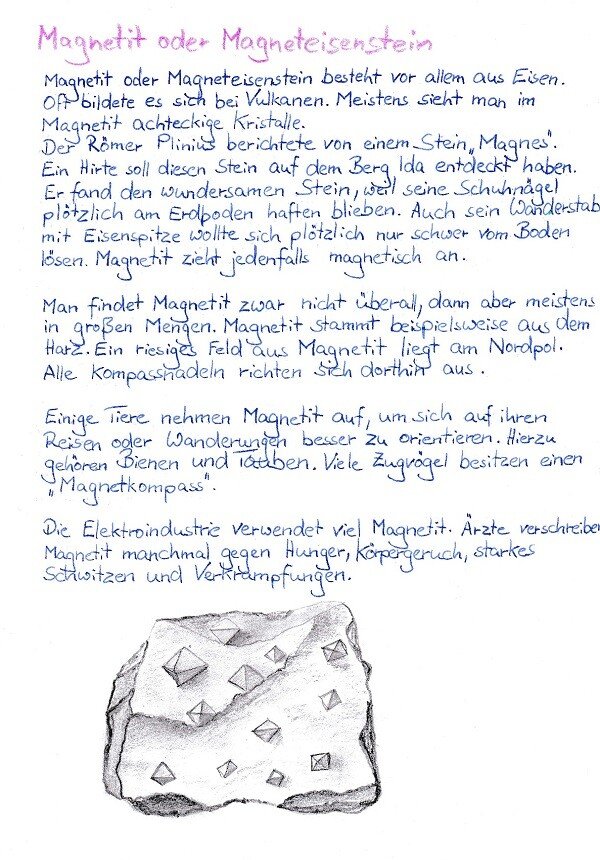 Magnetit oder Magneteisenstein
Magnetit oder Magneteisenstein besteht vor allem aus Eisen.
Oft bildete es sich bei Vulkanen. Meistens sieht man im
Magnetit achteckige Kristalle.
Der Römer Plinius berichtete von einem Stein „Magnes“.
Ein Hirte soll diesen Stein auf dem Berg Ida entdeckt haben.
Er fand den wundersamen Stein, weil seine Schuhnägel
plötzlich am Erdpoden haften blieben. Auch sein Wanderstab
mit Eisenspitze wollte sich plötzlich nur schwer vom Boden
lösen. Magnetit zieht jedenfalls magnetisch an.
Man findet Magnetit zwar nicht überall, dann aber meistens
in großen Mengen. Magnetit stammt beispielsweise aus dem
Harz. Ein riesiges Feld aus Magnetit liegt am Nordpol.
Alle Kompassnadeln richten sich dorthin aus.
Einige Tiere nehmen Magnetit auf, um sich auf ihren
Reisen oder Wanderungen besser zu orientieren. Hierzu
gehören Bienen und Tauben. Viele Zugvögel besitzen einen
„Magnetkompass“.
Die Elektroindustrie verwendet viel Magnetit. Ärzte verschreiben
Magnetit manchmal gegen Hunger, Körpergeruch, starkes
Schwitzen und Verkrampfungen.